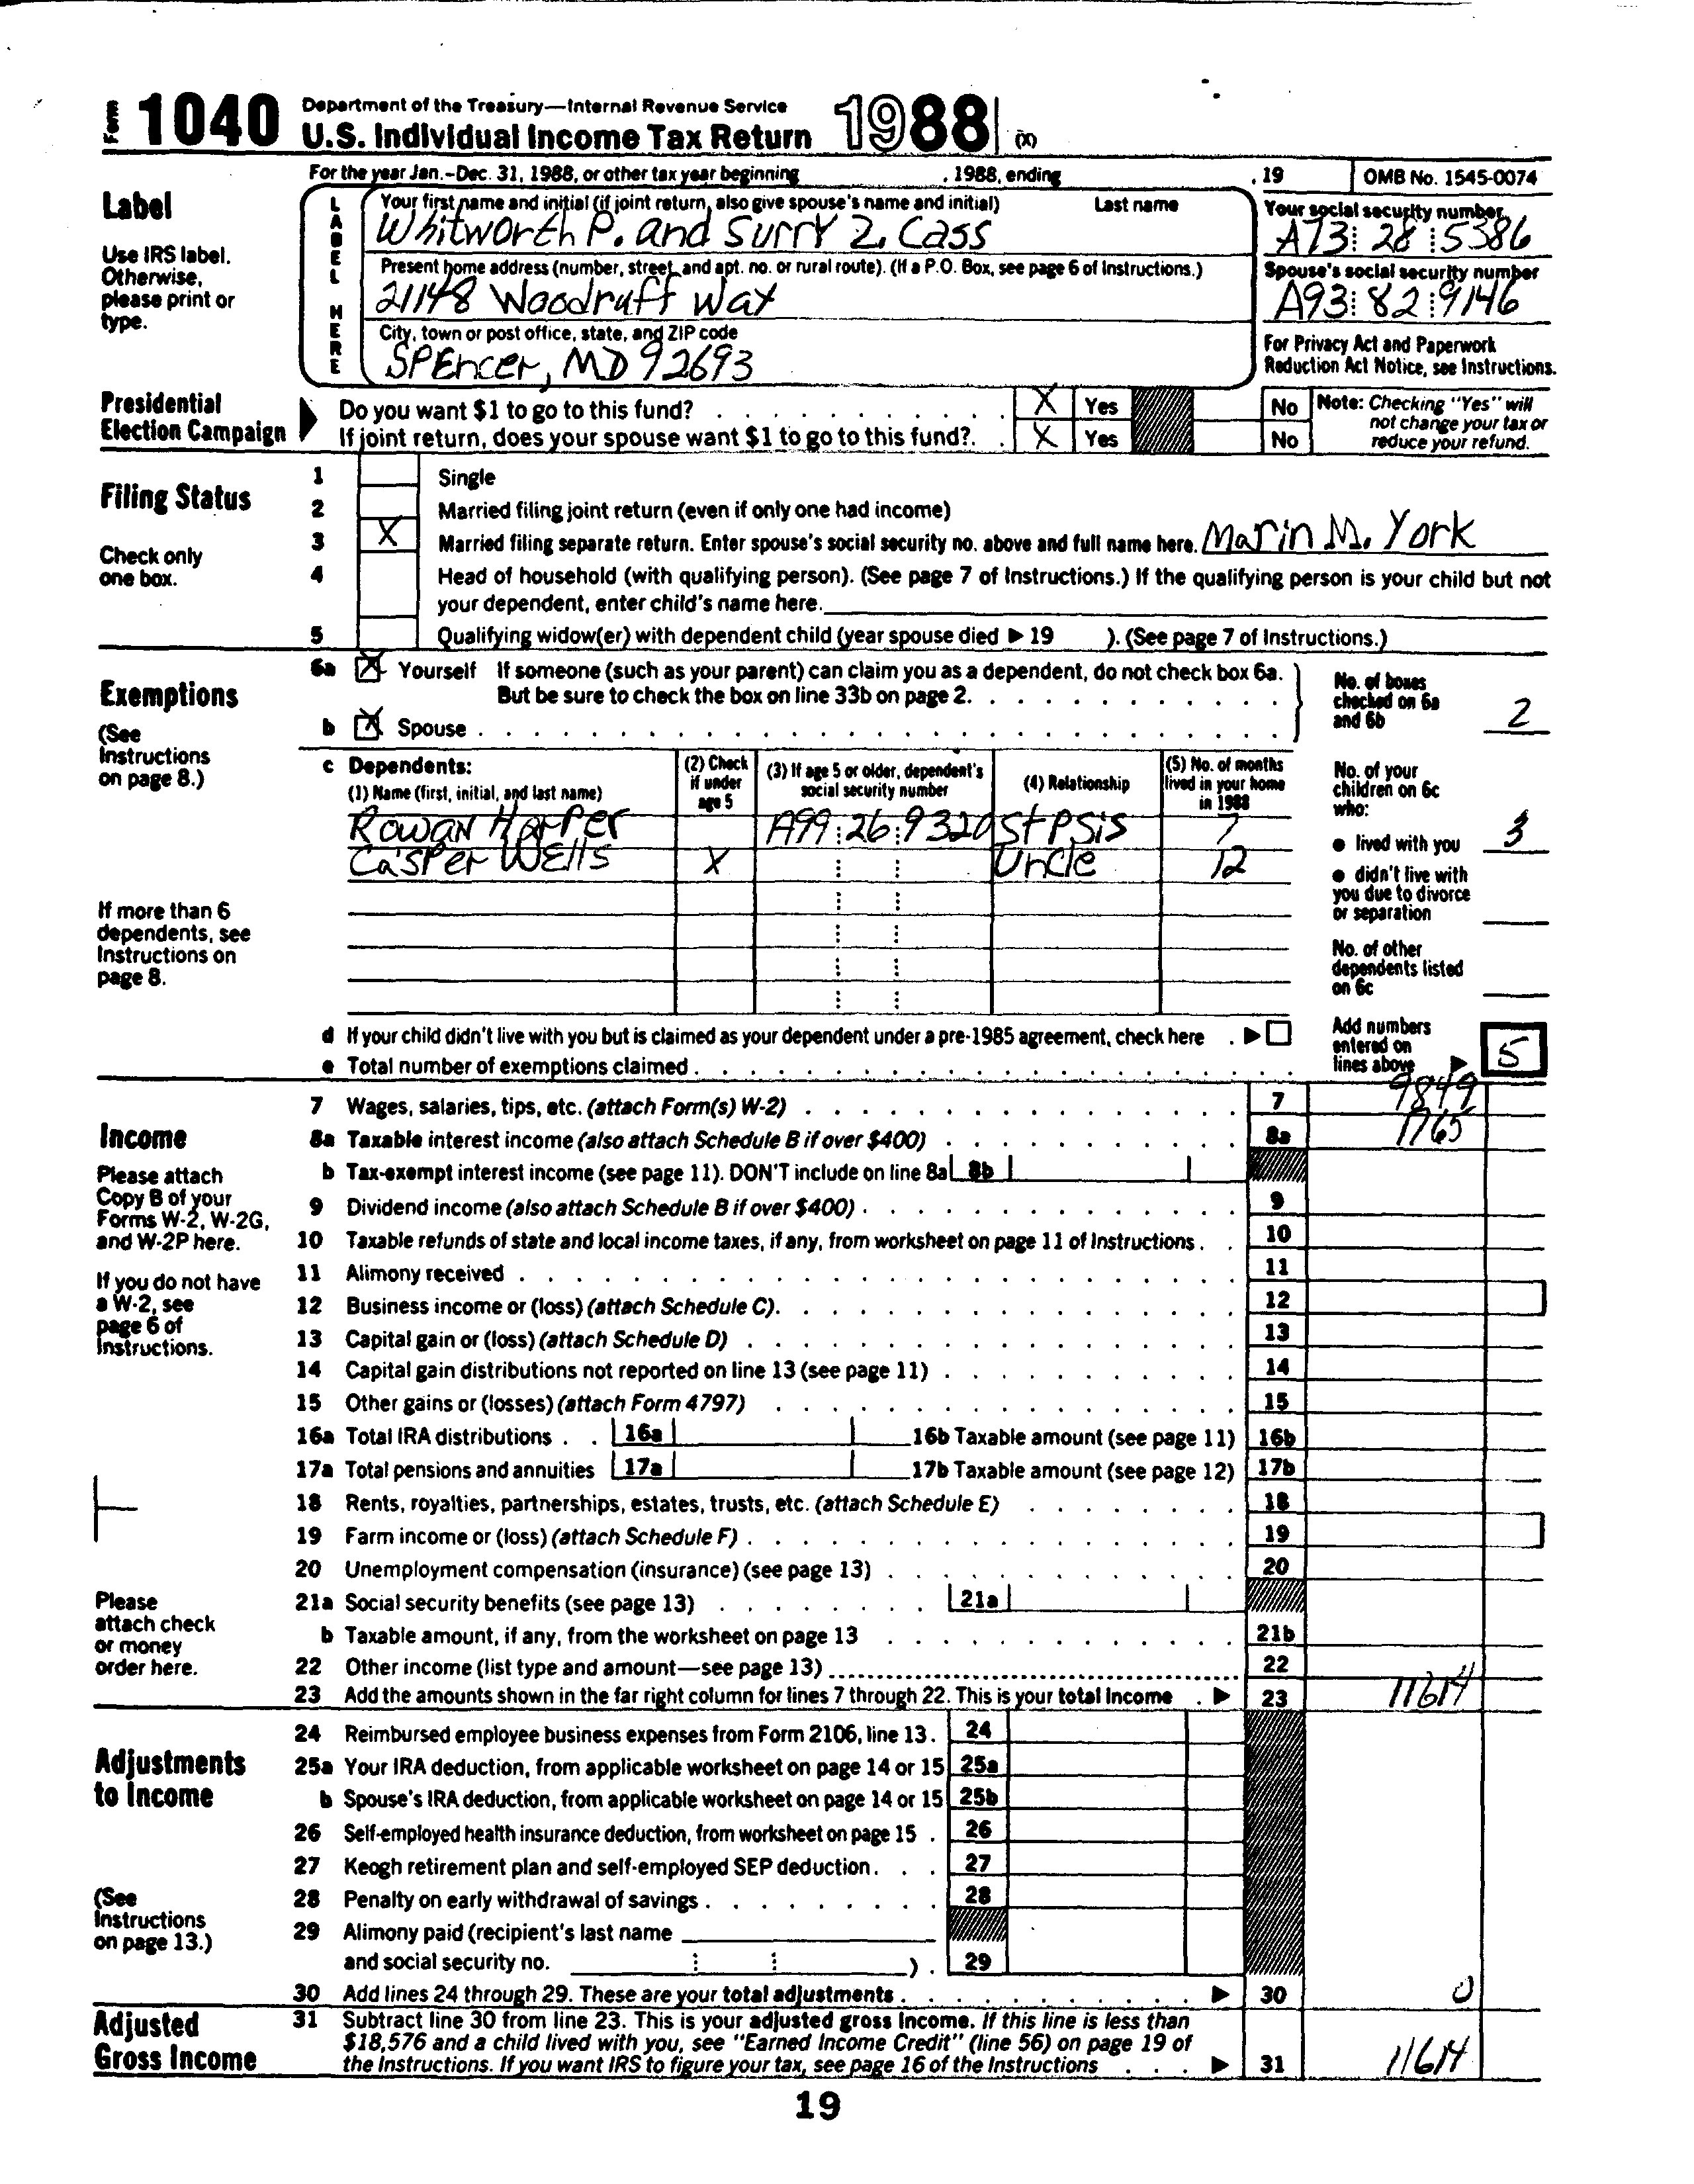 Form 1040 Department of the Treasury—Internal Revenue Service
U.S. Individual Income Tax Return 1988 (X)
For the year Jan.-Dec. 31, 1988, or other tax year beginning , 1988, ending , 19 OMB No. 1545-0074
Label
Use IRS label.
Otherwise,
please print or
type.
LABEL HERE
Your first name and initial (if joint return, also give spouse's name and initial) Last name
Whitworth P. and Surry Z. Cass
Your social security number
A73 28 5386
Present home address (number, street, and apt. no. or rural route). (If a P.O. Box, see page 6 of Instructions.)
21148 Woodruff Way
Spouse's social security number
A93 82 9146
City, town or post office, state, and ZIP code
SPEncer, MD 92693
For Privacy Act and Paperwork
Reduction Act Notice, see Instructions.
Presidential
Election Campaign
Do you want $1 to go to this fund? X Yes No
If joint return, does your spouse want $1 to go to this fund? X Yes No
Note: Checking "Yes" will
not change your tax or
reduce your refund.
Filing Status
Check only
one box.
1 Single
2 Married filing joint return (even if only one had income)
3 X Married filing separate return. Enter spouse's social security no. above and full name here. Marin M. York
4 Head of household (with qualifying person). (See page 7 of Instructions.) If the qualifying person is your child but not
your dependent, enter child's name here.
5 Qualifying widow(er) with dependent child (year spouse died ▶ 19 ). (See page 7 of Instructions.)
Exemptions
(See
Instructions
on page 8.)
6a X Yourself If someone (such as your parent) can claim you as a dependent, do not check box 6a.
But be sure to check the box on line 33b on page 2.
b X Spouse
No. of boxes
checked on 6a
and 6b 2
c Dependents:
(1) Name (first, initial, and last name)
(2) Check
if under
age 5
(3) If age 5 or older, dependent's
social security number
(4) Relationship
(5) No. of months
lived in your home
in 1988
Rowan Harper A99 26 9320 StPSis 7
Casper Wells X Uncle 12
No. of your
children on 6c
who:
● lived with you 3
● didn't live with
you due to divorce
or separation
No. of other
dependents listed
on 6c
If more than 6
dependents, see
Instructions on
page 8.
d If your child didn't live with you but is claimed as your dependent under a pre-1985 agreement, check here ▶
e Total number of exemptions claimed
Add numbers
entered on
lines above ▶ 5
Income
Please attach
Copy B of your
Forms W-2, W-2G,
and W-2P here.
If you do not have
a W-2, see
page 6 of
Instructions.
Please
attach check
or money
order here.
7 Wages, salaries, tips, etc. (attach Form(s) W-2) 7 9849
8a Taxable interest income (also attach Schedule B if over $400) 8a 1765
b Tax-exempt interest income (see page 11). DON'T include on line 8a 8b
9 Dividend income (also attach Schedule B if over $400) 9
10 Taxable refunds of state and local income taxes, if any, from worksheet on page 11 of Instructions 10
11 Alimony received 11
12 Business income or (loss) (attach Schedule C) 12
13 Capital gain or (loss) (attach Schedule D) 13
14 Capital gain distributions not reported on line 13 (see page 11) 14
15 Other gains or (losses) (attach Form 4797) 15
16a Total IRA distributions 16a 16b Taxable amount (see page 11) 16b
17a Total pensions and annuities 17a 17b Taxable amount (see page 12) 17b
18 Rents, royalties, partnerships, estates, trusts, etc. (attach Schedule E) 18
19 Farm income or (loss) (attach Schedule F) 19
20 Unemployment compensation (insurance) (see page 13) 20
21a Social security benefits (see page 13) 21a
b Taxable amount, if any, from the worksheet on page 13 21b
22 Other income (list type and amount—see page 13) 22
23 Add the amounts shown in the far right column for lines 7 through 22. This is your total income ▶ 23 11614
Adjustments
to Income
(See
Instructions
on page 13.)
24 Reimbursed employee business expenses from Form 2106, line 13 24
25a Your IRA deduction, from applicable worksheet on page 14 or 15 25a
b Spouse's IRA deduction, from applicable worksheet on page 14 or 15 25b
26 Self-employed health insurance deduction, from worksheet on page 15 26
27 Keogh retirement plan and self-employed SEP deduction 27
28 Penalty on early withdrawal of savings 28
29 Alimony paid (recipient's last name
and social security no. ) 29
30 Add lines 24 through 29. These are your total adjustments ▶ 30 0
Adjusted
Gross Income
31 Subtract line 30 from line 23. This is your adjusted gross income. If this line is less than
$18,576 and a child lived with you, see "Earned Income Credit" (line 56) on page 19 of
the Instructions. If you want IRS to figure your tax, see page 16 of the Instructions ▶ 31 11614
19